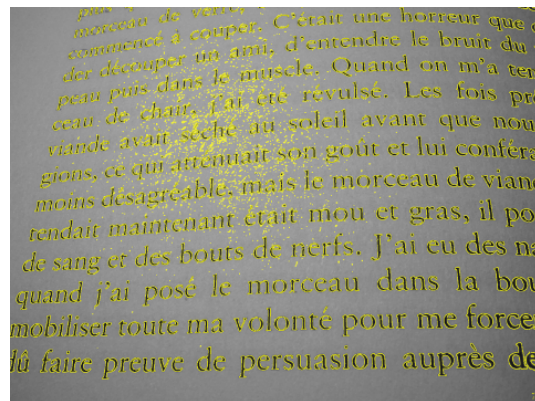 morceau de verre,
commencé à couper. C'était une horreur que
der découper un ami, d'entendre le bruit du
peau puis dans le muscle. Quand on m'a
ceau de chair, j'ai été révulsé. Les fois
viande avait séché au soleil avant que
gions, ce qui atténuait son goût et lui
moins désagréable, mais le morceau de
tendait maintenant était mou et gras, il
de sang et des bouts de nerfs. J'ai eu des
quand j'ai posé le morceau dans la
mobiliser toute ma volonté pour me
dû faire preuve de persuasion auprès de